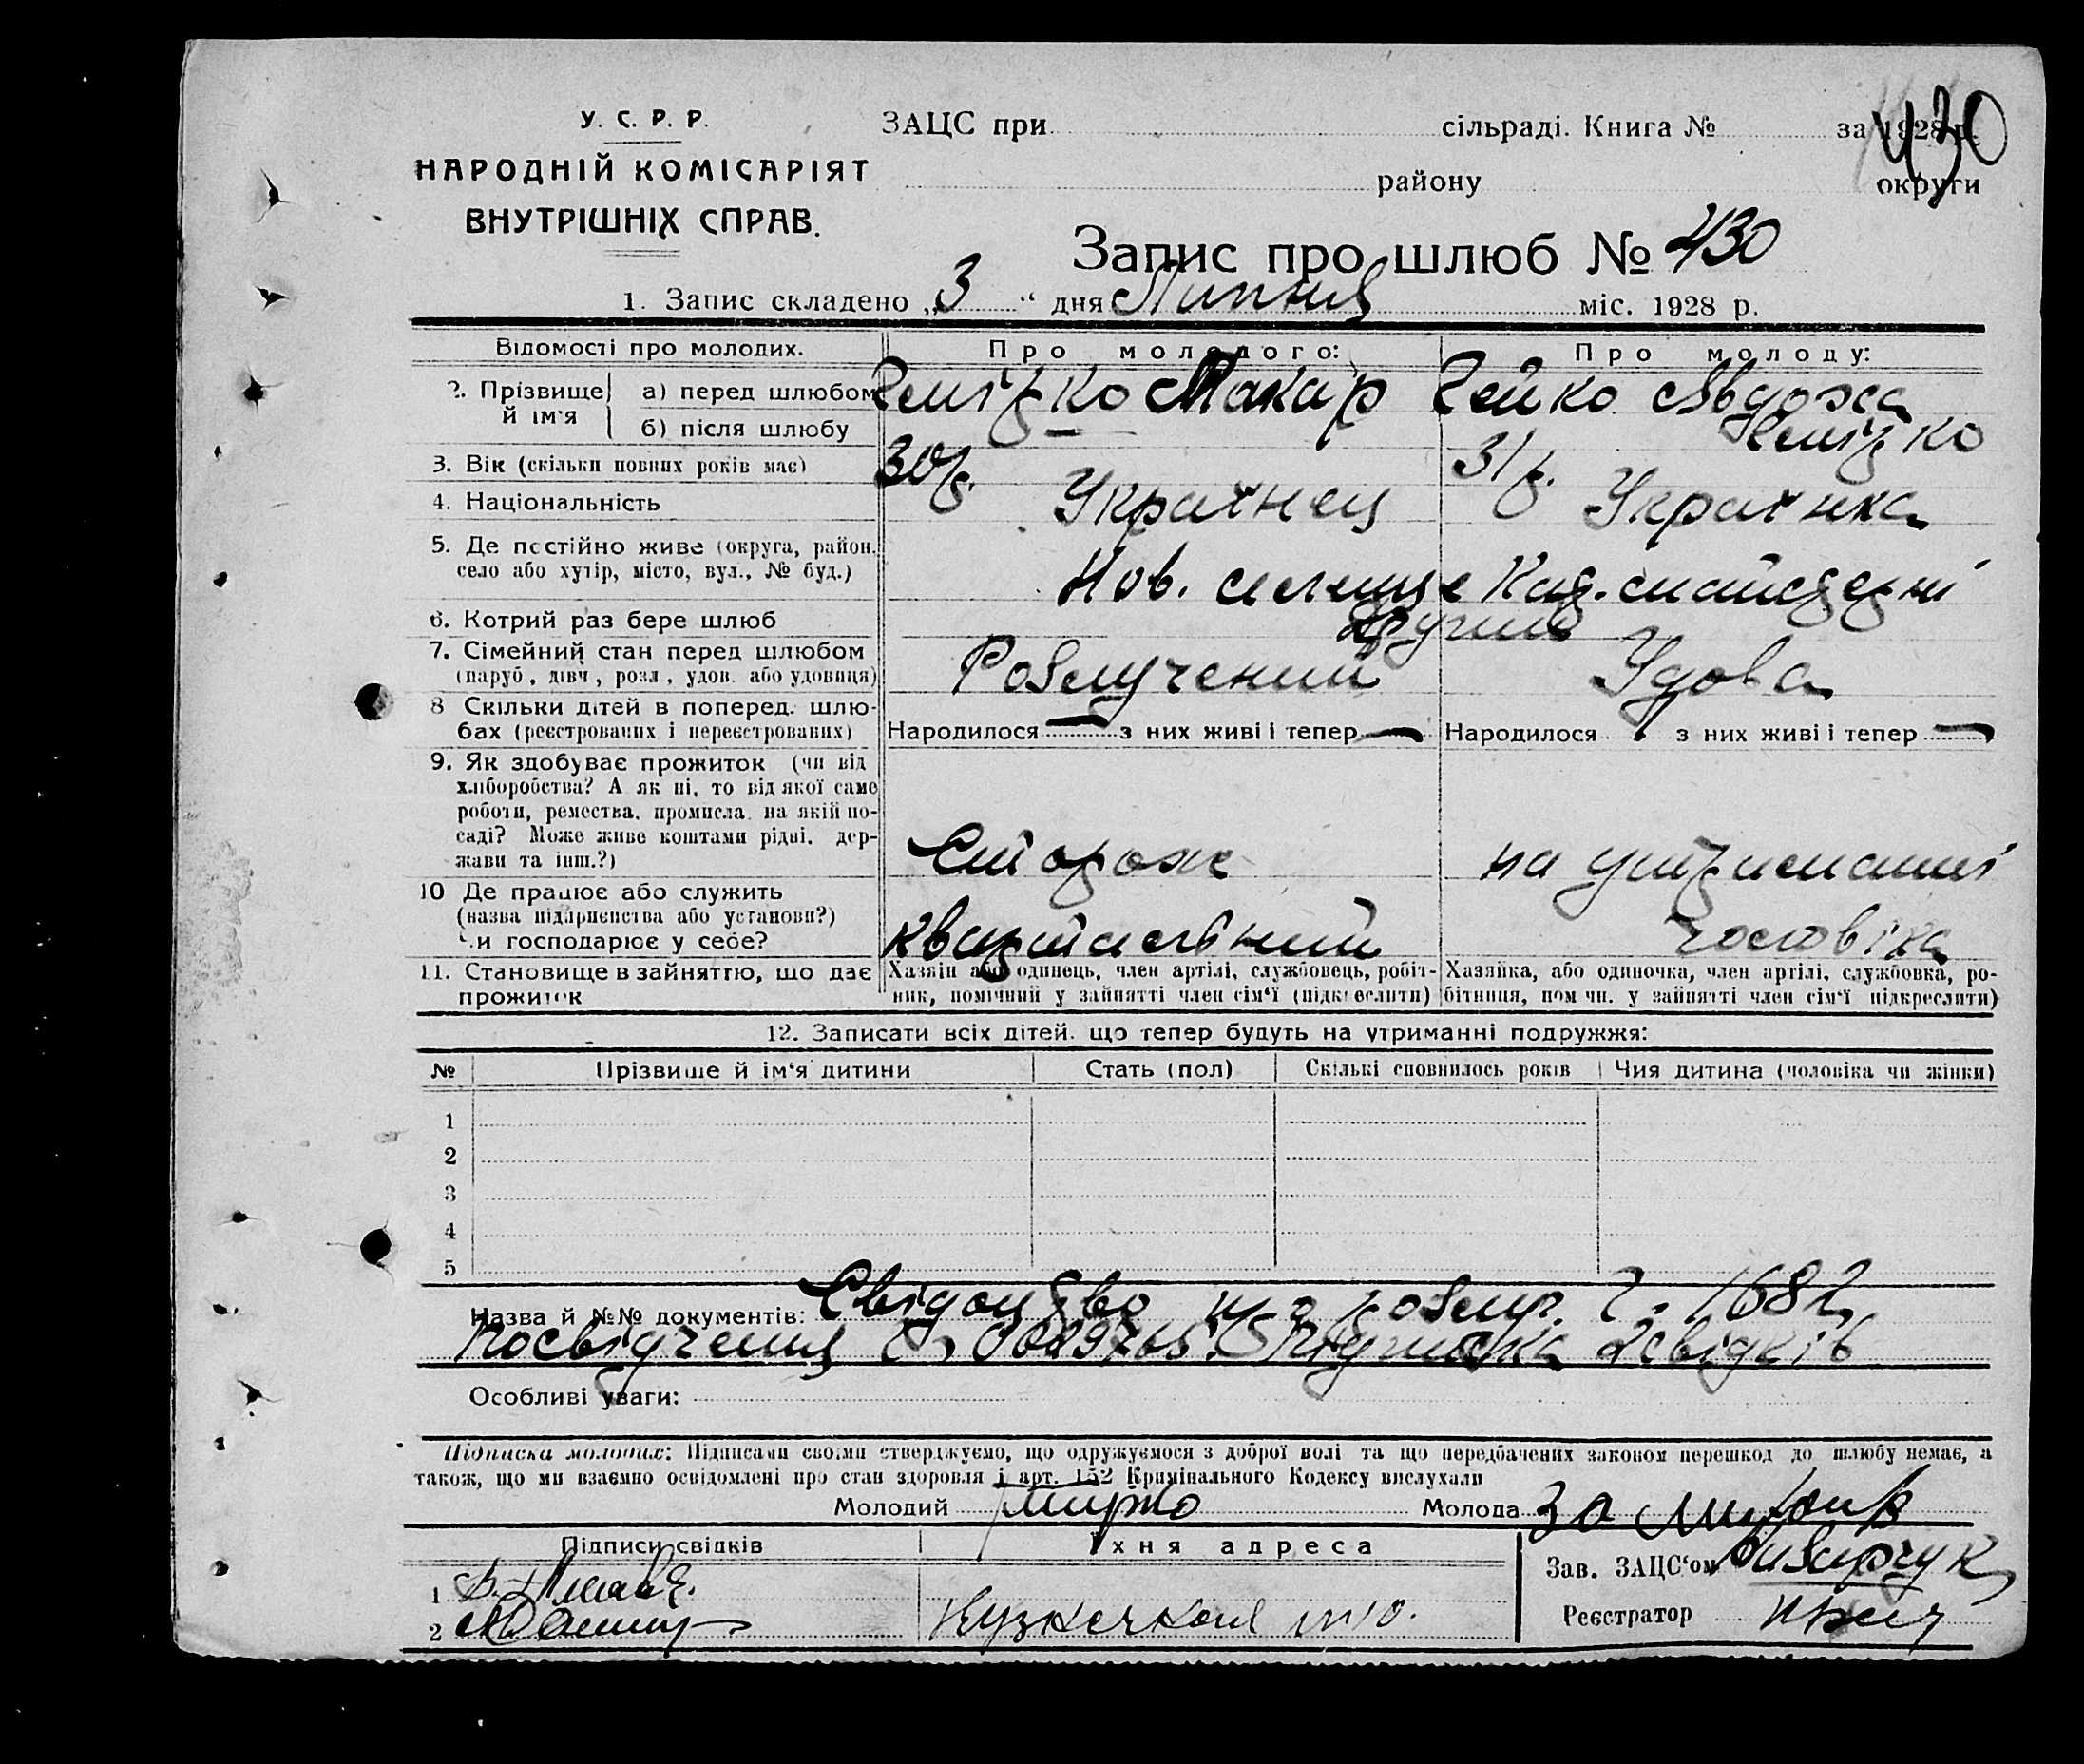 430
У. С. Р. Р.
НАРОДНІЙ КОМІСАРІЯТ
ВНУТРІШНІХ СПРАВ.
ЗАЦС при сільраді. Книга № за 1928 р.
району округи
Запис про шлюб № 430
1. Запис складено „3“ дня Липня міс. 1928 р.
Відомості про молодих. Про молодого: Про молоду:
2. Прізвище й ім'я а) перед шлюбом Макар Гейко Явдоха
б) після шлюбу
3. Вік (скільки повних років має) 30 р. 31 р.
4. Національність Українец Українка
5. Де постійно живе (округа, район,
село або хутір, місто, вул., № буд.) Нов. селище
6. Котрий раз бере шлюб Другий
7. Сімейний стан перед шлюбом
(паруб., дівч., розл., удов. або удовиця) Розлучений Удова
8 Скільки дітей в поперед. шлю-
бах (реєстрованих і нереєстрованих) Народилося — з них живі і тепер — Народилося з них живі і тепер —
9. Як здобуває прожиток (чи від
хліборобства? А як ні, то від якої саме
роботи, ремества, промисла, на якій по-
саді? Може живе коштами рідні, дер-
жави та інш.?) Сторож на утриманні
10 Де працює або служить
(назва підприємства або установи?)
Чи господарює у себе? квартальний чоловіка
11. Становище в зайняттю, що дає
прожиток
Хазяїн або одинець, член артілі, службовець, робіт-
ник, помічний у зайнятті член сім'ї (підкреслити)
Хазяйка, або одиночка, член артілі, службовка, ро-
бітниця, пом чн. у зайнятті член сім'ї підкреслити)
12. Записати всіх дітей, що тепер будуть на утриманні подружжя:
№ Прізвище й ім'я дитини Стать (пол) Скількі сповнилось років Чия дитина (чоловіка чи жінки)
1
2
3
4
5
Назва й №№ документів: Свідоцтво про розлуч. 1682
Посвідчення свідків
Особливі уваги:
Підписка молодих: Підписами своїми стверджуємо, що одружуємося з доброї волі та що передбачених законом перешкод до шлюбу немає, а
також, що ми взаємно освідомлені про стан здоровля і арт. 152 Кримінального Кодексу вислухали
Молодий Молода За
Підписи свідків Їхня адреса
Зав. ЗАЦС'ом
1
Реєстратор
2